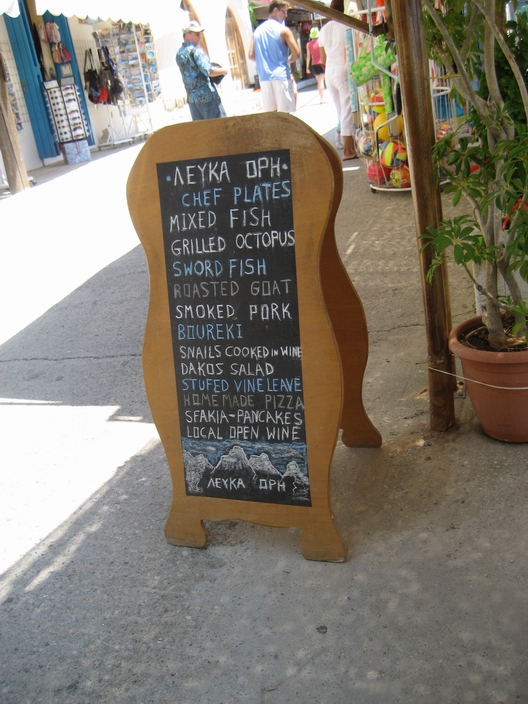 ·ΛΕΥΚΑ ΟΡΗ·
CHEF PLATES
MIXED FISH
GRILLED OCTOPUS
SWORD FISH
ROASTED GOAT
SMOKED PORK
BOUREKI
SNAILS COOKED IN WINE
DAKOS SALAD
STUFED VINE LEAVE
HOME MADE PIZZA
SFAKIA-PANCAKES
LOCAL OPEN WINE
ΛΕΥΚΑ ΟΡΗ